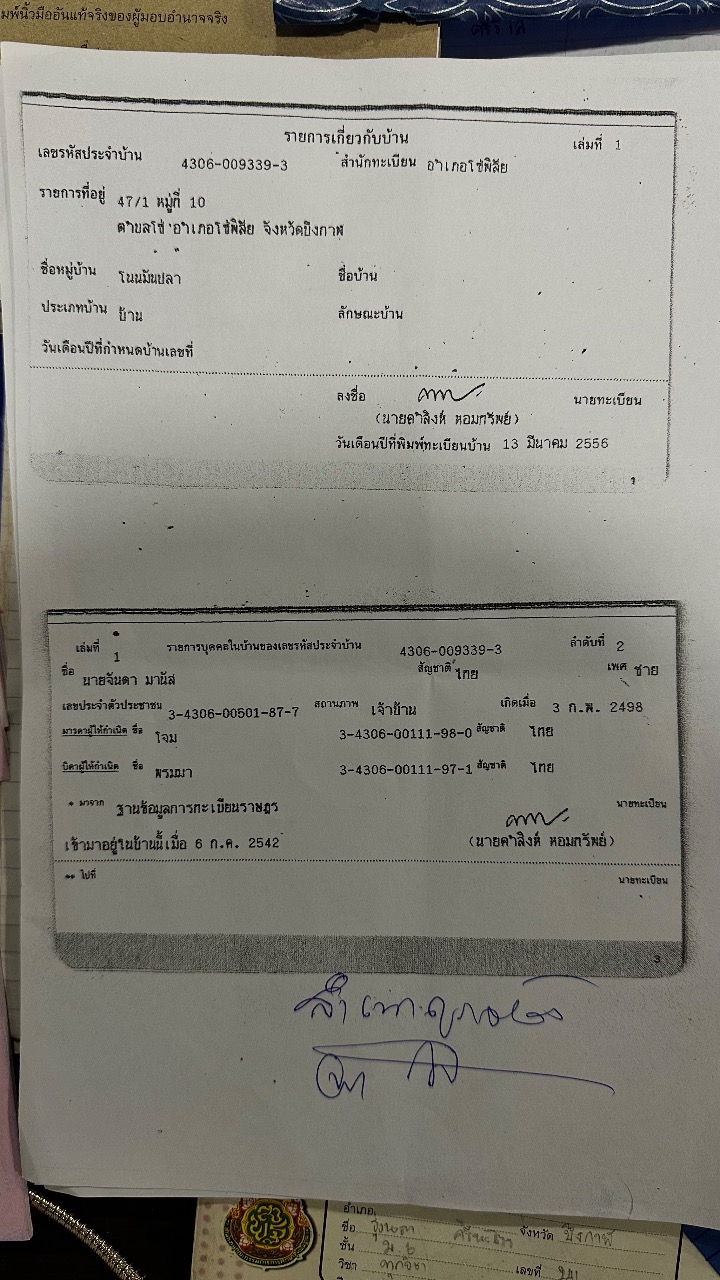 มพ์นิ้วมืออันแท้จริงของผู้มอบอำนาจจริง
รายการเกี่ยวกับบ้าน
เล่มที่ 1
เลขรหัสประจำบ้าน 4306-009339-3 สำนักทะเบียน อำเภอโซ่พิสัย
รายการที่อยู่ 47/1 หมู่ที่ 10
ตำบลโซ่ อำเภอโซ่พิสัย จังหวัดบึงกาฬ
ชื่อหมู่บ้าน โนนมันปลา ชื่อบ้าน
ประเภทบ้าน บ้าน ลักษณะบ้าน
วันเดือนปีที่กำหนดบ้านเลขที่
ลงชื่อ นายทะเบียน
(นายคำสิงห์ หอมทรัพย์)
วันเดือนปีที่พิมพ์ทะเบียนบ้าน 13 มีนาคม 2556
1
เล่มที่ 1 รายการบุคคลในบ้านของเลขรหัสประจำบ้าน 4306-009339-3 ลำดับที่ 2
ชื่อ นายจันดา มานัส สัญชาติ ไทย เพศ ชาย
เลขประจำตัวประชาชน 3-4306-00501-87-7 สถานภาพ เจ้าบ้าน เกิดเมื่อ 3 ก.พ. 2498
มารดาผู้ให้กำเนิด ชื่อ โจม 3-4306-00111-98-0 สัญชาติ ไทย
บิดาผู้ให้กำเนิด ชื่อ พรมมา 3-4306-00111-97-1 สัญชาติ ไทย
* มาจาก ฐานข้อมูลการทะเบียนราษฎร นายทะเบียน
เข้ามาอยู่ในบ้านนี้เมื่อ 6 ก.ค. 2542 (นายคำสิงห์ หอมทรัพย์)
** ไปที่ นายทะเบียน
3
อำเภอ
ชื่อ จังหวัด บึงกาฬ
ชั้น ม 6
วิชา เลขที่